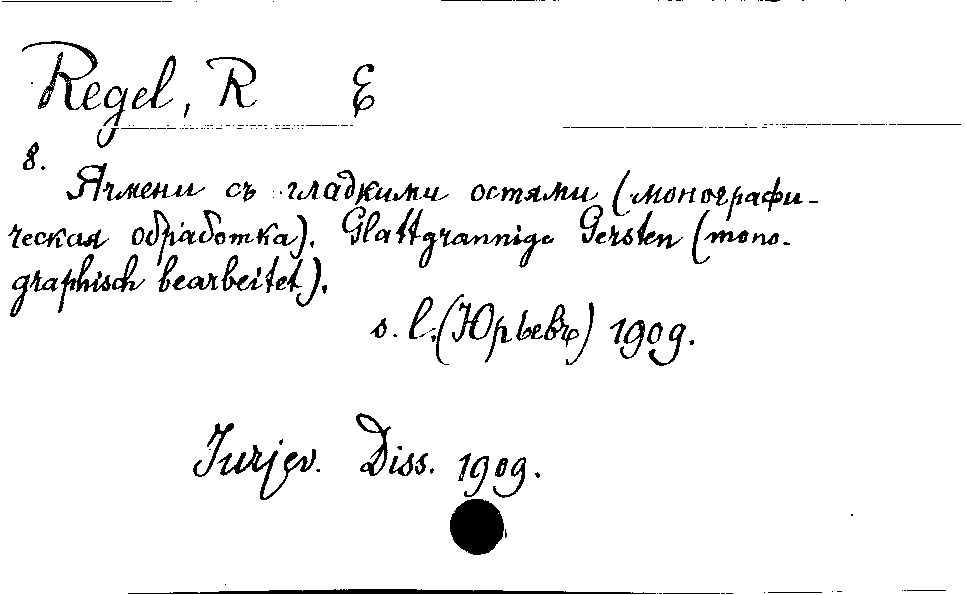 Regel, R E
8.
Ячмени съ гладкими остями (монографи-
ческая обработка). Glattgrannige Gersten (mono-
graphisch bearbeitet).
s. l. (Юрьевъ) 1909.
Jurjev. Diss. 1909.